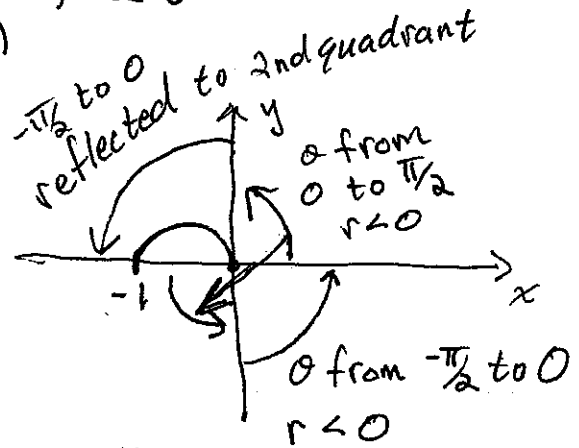 )
-π/2 to 0
reflected to 2nd quadrant
y
θ from
0 to π/2
r<0
-1
x
θ from -π/2 to 0
r<0